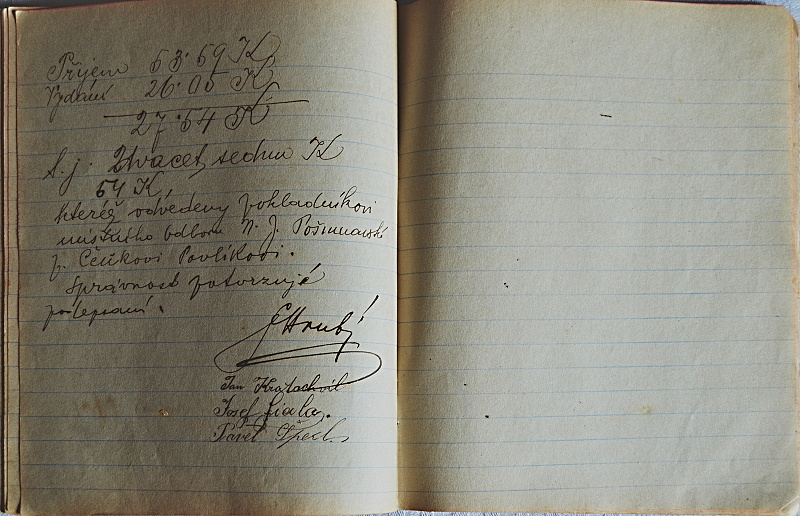 Příjem 53·59 K
Vydání 26·05 K
27·54 K
t. j. Dvacet sedm K
54 K,
kteréž odvedeny pokladníkovi
místního odboru N. J. Pošumavské
p. Čeňkovi Pavlíkovi.
Správnost potvrzují
podepsaní.
Hrubý
Jan Kratochvíl
Josef Fiala.
Pavel